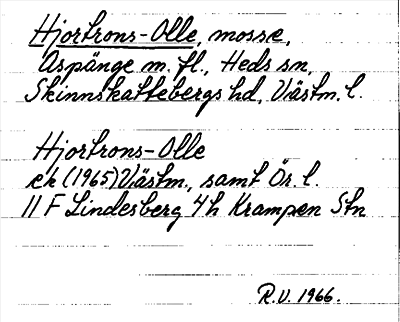 Hjortrons-Olle, mosse,
Aspänge m.fl., Heds sn,
Skinnskattebergs hd, Västm. l.
Hjortrons-Olle
ek (1965) Västm., samt Ör. l.
11 F Lindesberg 4h Krampen Stn
R.V. 1966.